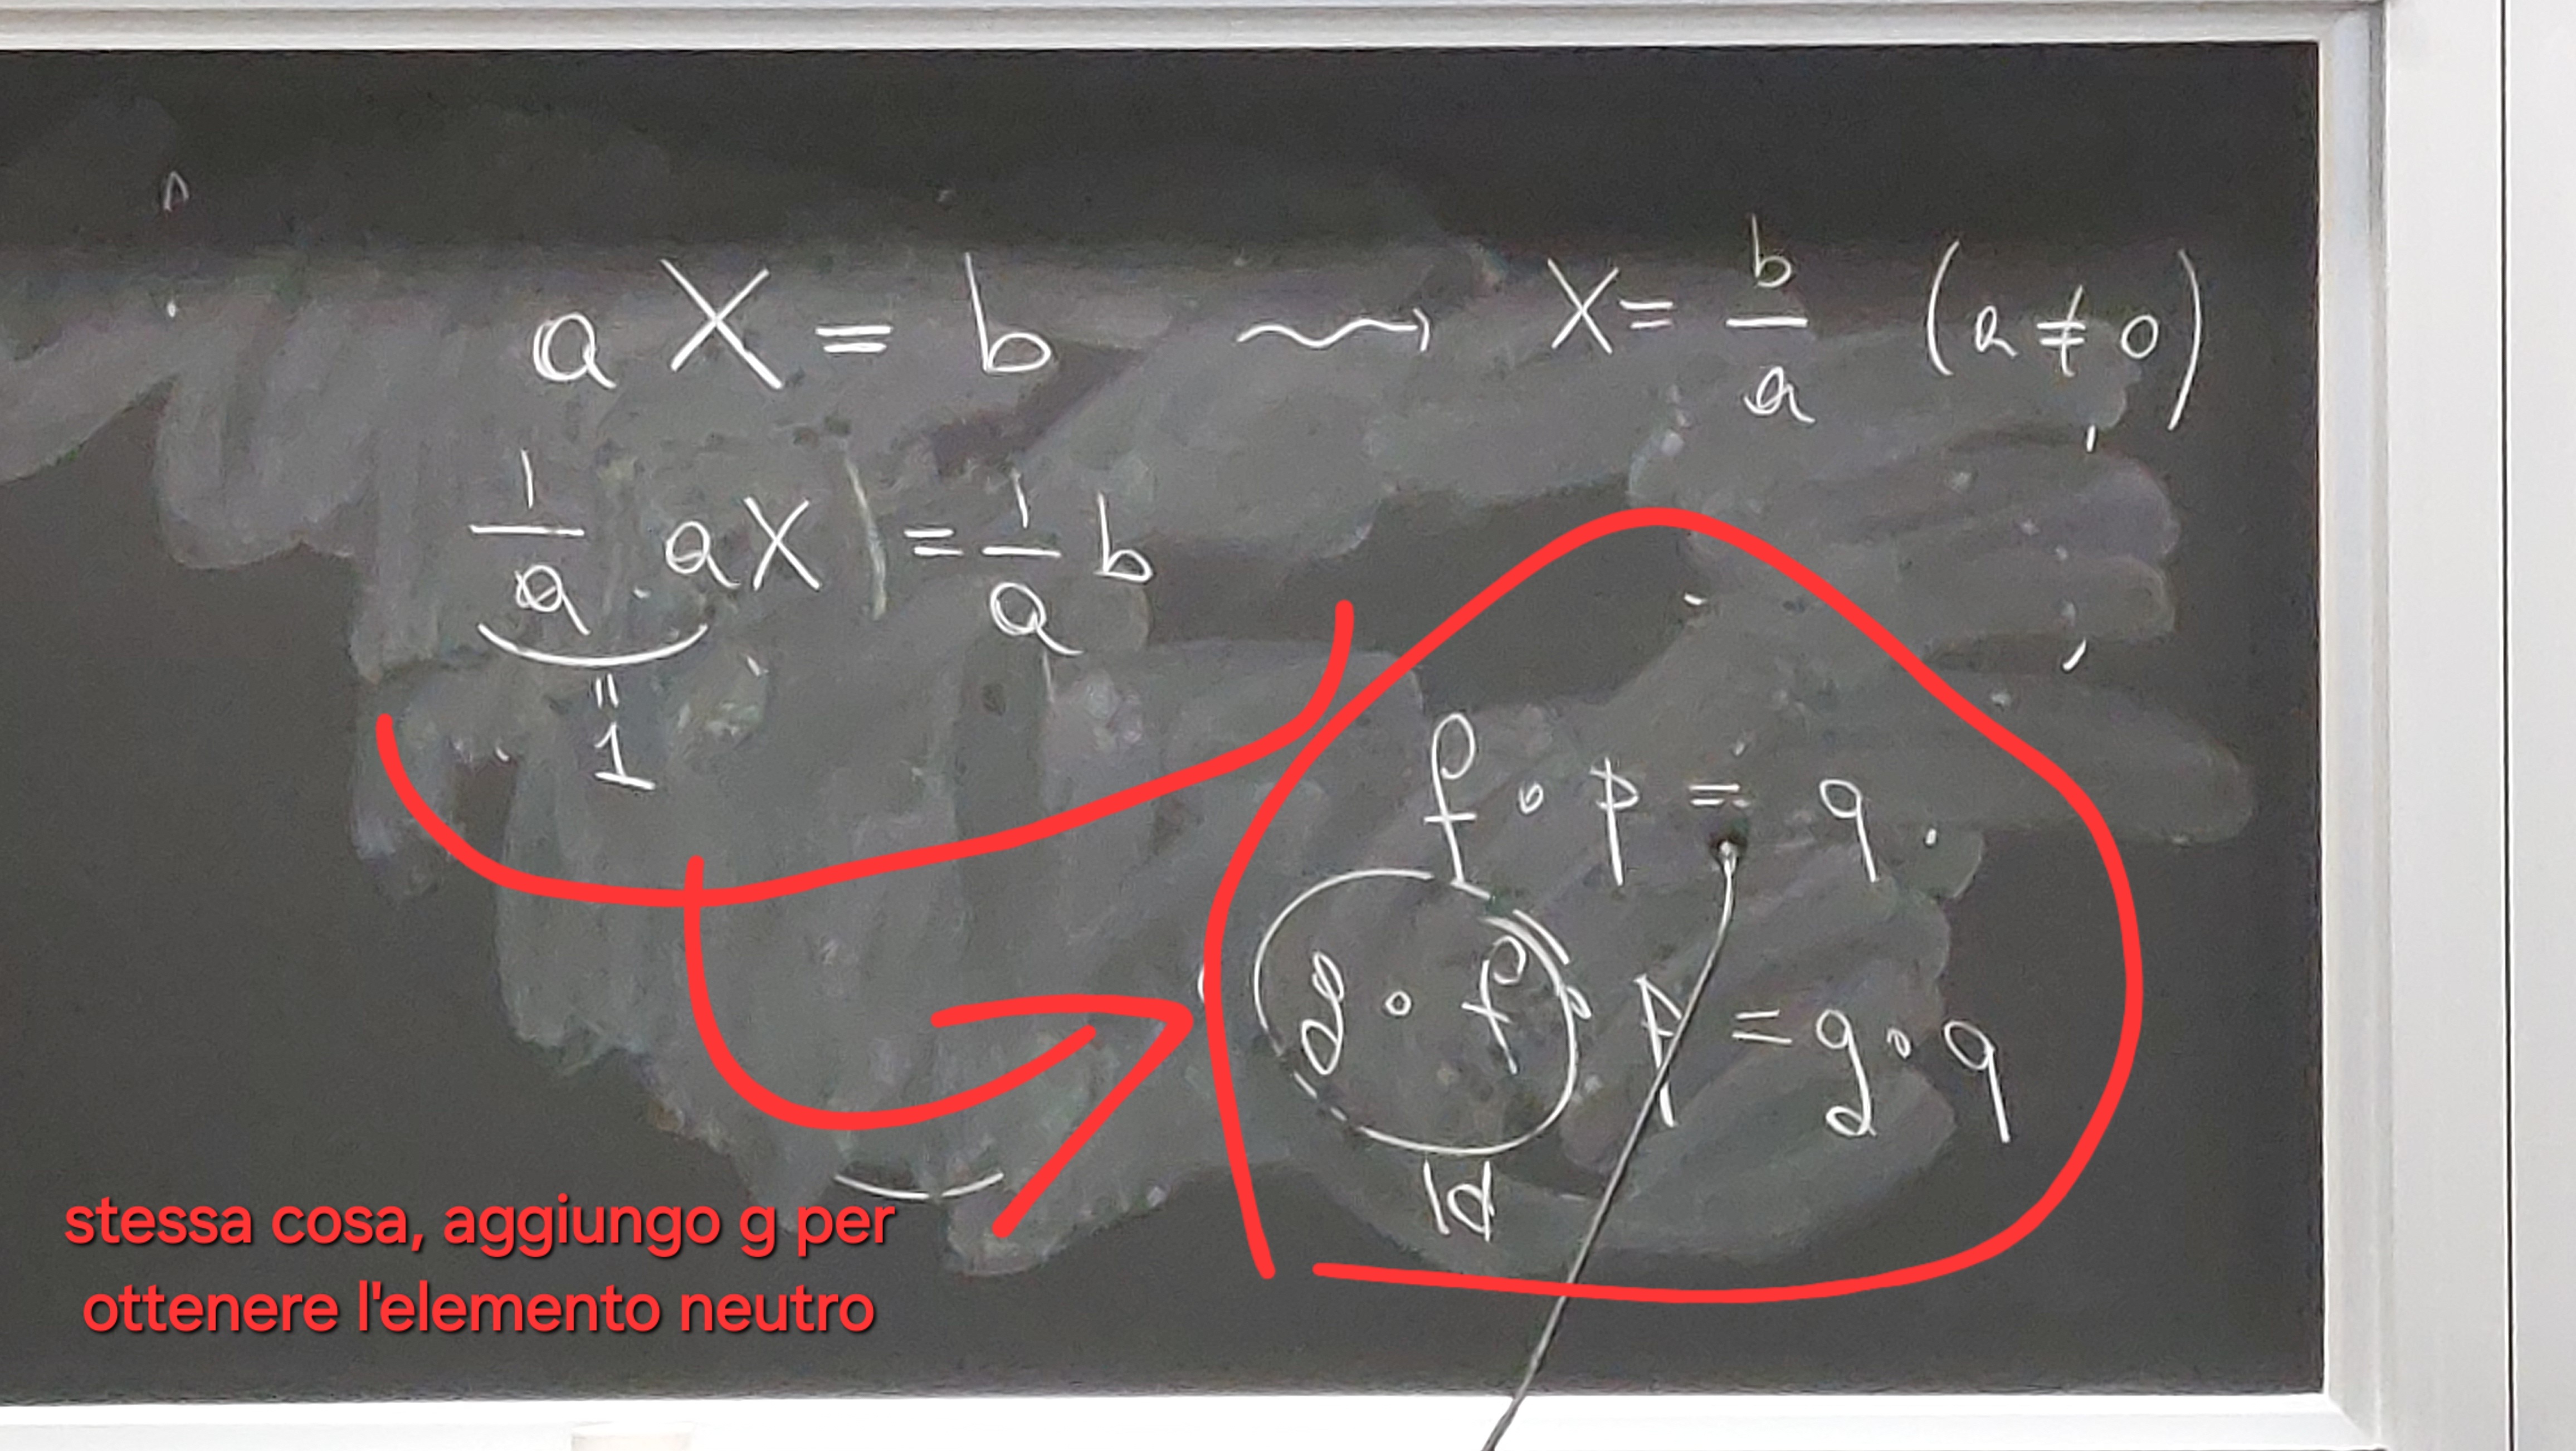 a X = b ⇝ X = b/a (a ≠ 0)
1/a · a X = 1/a b
"
1
f ∘ p = q .
g ∘ f ∘ p = g ∘ q
Id
stessa cosa, aggiungo g per
ottenere l'elemento neutro